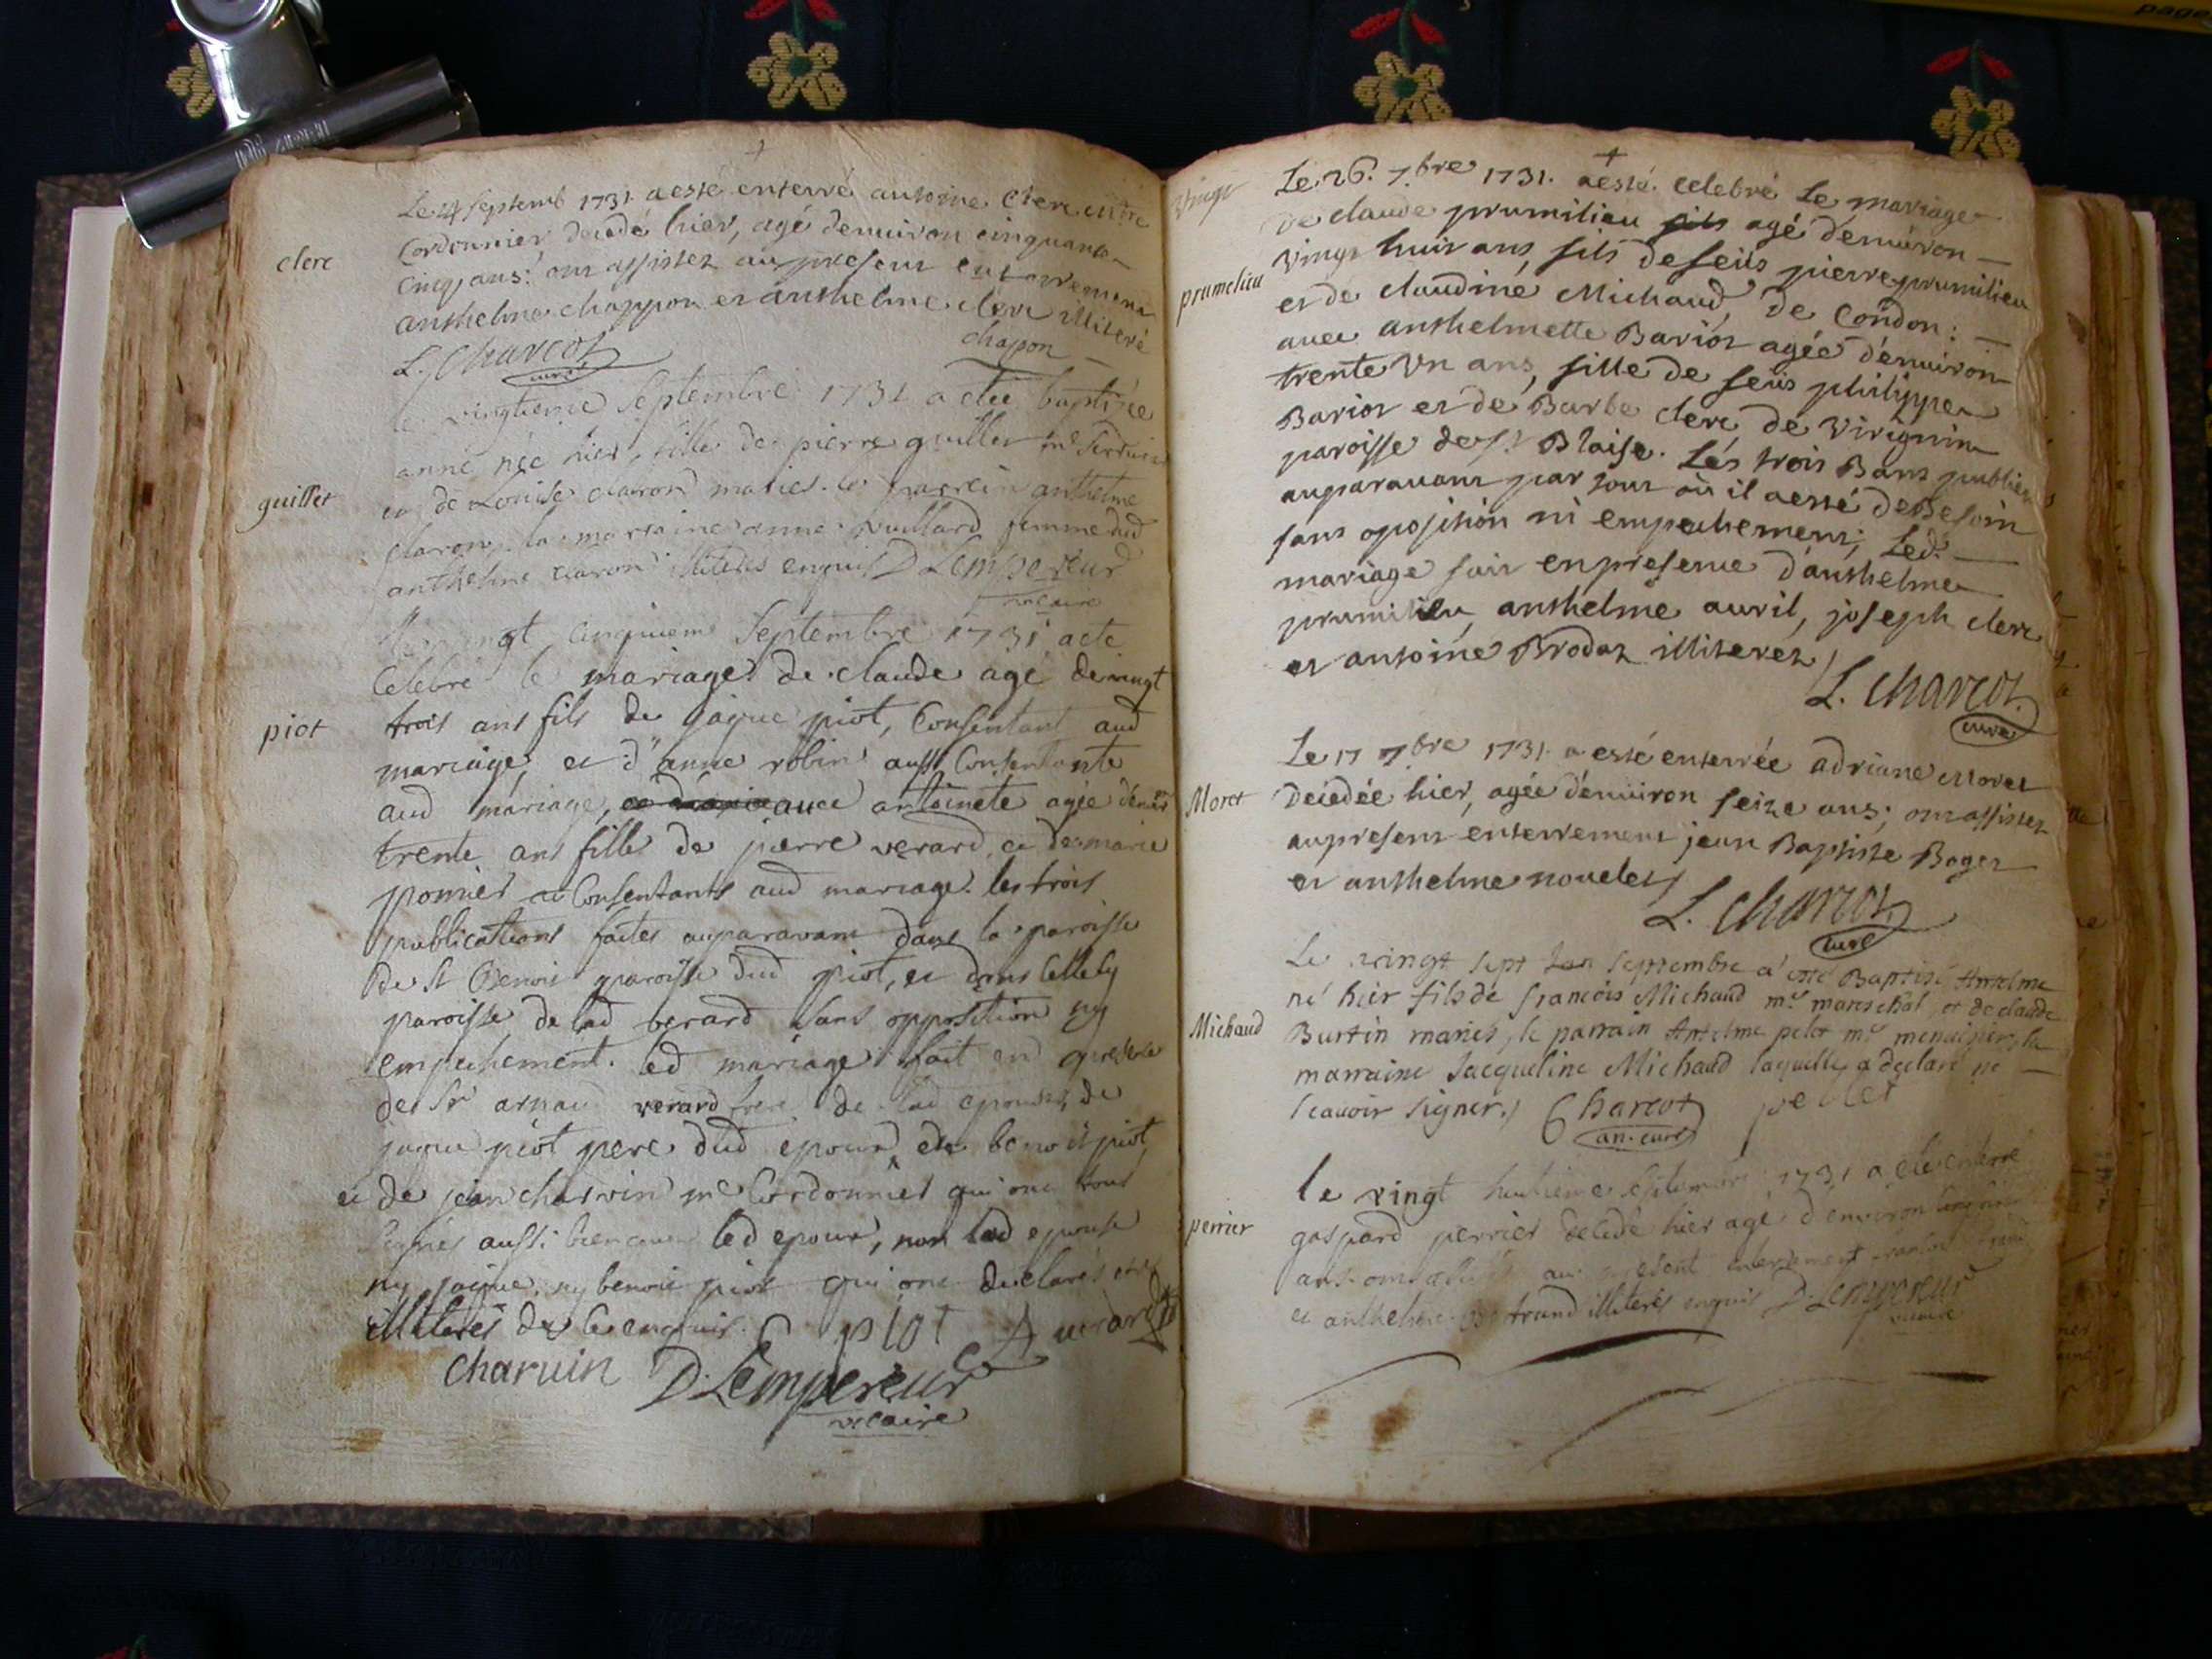 page
Le 4 septemb 1731. a esté enterré antoine Clerc
Cordonnier decedé hier, agé denuiron cinquante
clerc
cinq ans: ont assistez au present enterrement
anthelme chappon et anthelme clerc illiteré
L. Charcot chapon
curé
le vingtieme septembre 1731 a eté baptisée
anne née hier, fille de pierre guillet
guillet
et de Louise claron mariés. le parrein anthelme
claron. la marraine anne vuillard femme dud
anthelme claron illiterés enquis D Lempereur
vicaire
vingt cinquieme Septembre 1731 a eté
Célébré le mariage de claude agé de vingt
piot
trois ans fils de jaque piot, Consentant aud
mariage, et d'anne robin aussi Consentante
aud mariage, auec antoinete agée
trente ans fille de pierre verard et de marie
ponnier Consentants aud mariage. les trois
publications faites auparavant dans la paroisse
de st Benoit paroisse dud piot, et dans celle cy
paroisse de lad verard sans opposition ny
empechement. led mariage fait en presence
de Sr arnau verard frere de lad epouse, de
jaque piot pere dud epoux, de benoit piot,
et de jean charvin me Cordonnier qui ont tous
signés aussi bien que led epoux, non lad epouse
ny jaque, ny benoit piot qui ont declarés etre
illiterés de ce enquis. C piot A uerard
charuin D. Lempereur
vicaire
Le 26. 7.bre 1731. a esté celebré Le mariage
vinge
de claude prumilieu agé denuiron
vingt huit ans, fils de feüs pierre prumilieu
prumelieu
et de claudine Michaud, de Condon:
auec anthelmette Bariot agée denuiron
trente Vn ans, fille de feüs philippe
Bariot et de Barbe clerc de Virignin
paroisse de St Blaise. Lés trois Bans publiez
auparauant par tout où il a esté de Besoin
sans oposition ni empechement; Led.
mariage fait en presence d'anthelme
prumilieu, anthelme auril, joseph clerc
et antoine Brodaz illiterez
L. Charcot.
curé
Le 17 7bre 1731. a esté enterrée adriane Moret
Moret
decedée hier, agée denuiron seize ans; ont assistez
au present enterrement jean Baptiste Boger
et anthelme nouelet
L. Charcot
curé
Le vingt sept septembre a eté Baptisé Antelme
né hier fils de françois Michaud me mareschal, et de claude
Michaud
Burtin mariés, le parrain Antelme pelot me menuisier, la
marraine Jacqueline Michaud laquelle a declaré ne
scauoir signer. Charcot
an. curé
le vingt huitieme septembre 1731 a eté enterré
perrier
gaspard perrier decedé hier agé d'environ
ans. ont assisté au present enterrement
et anthelme Bertrand illiterés enquis D. Lempereur
vicaire